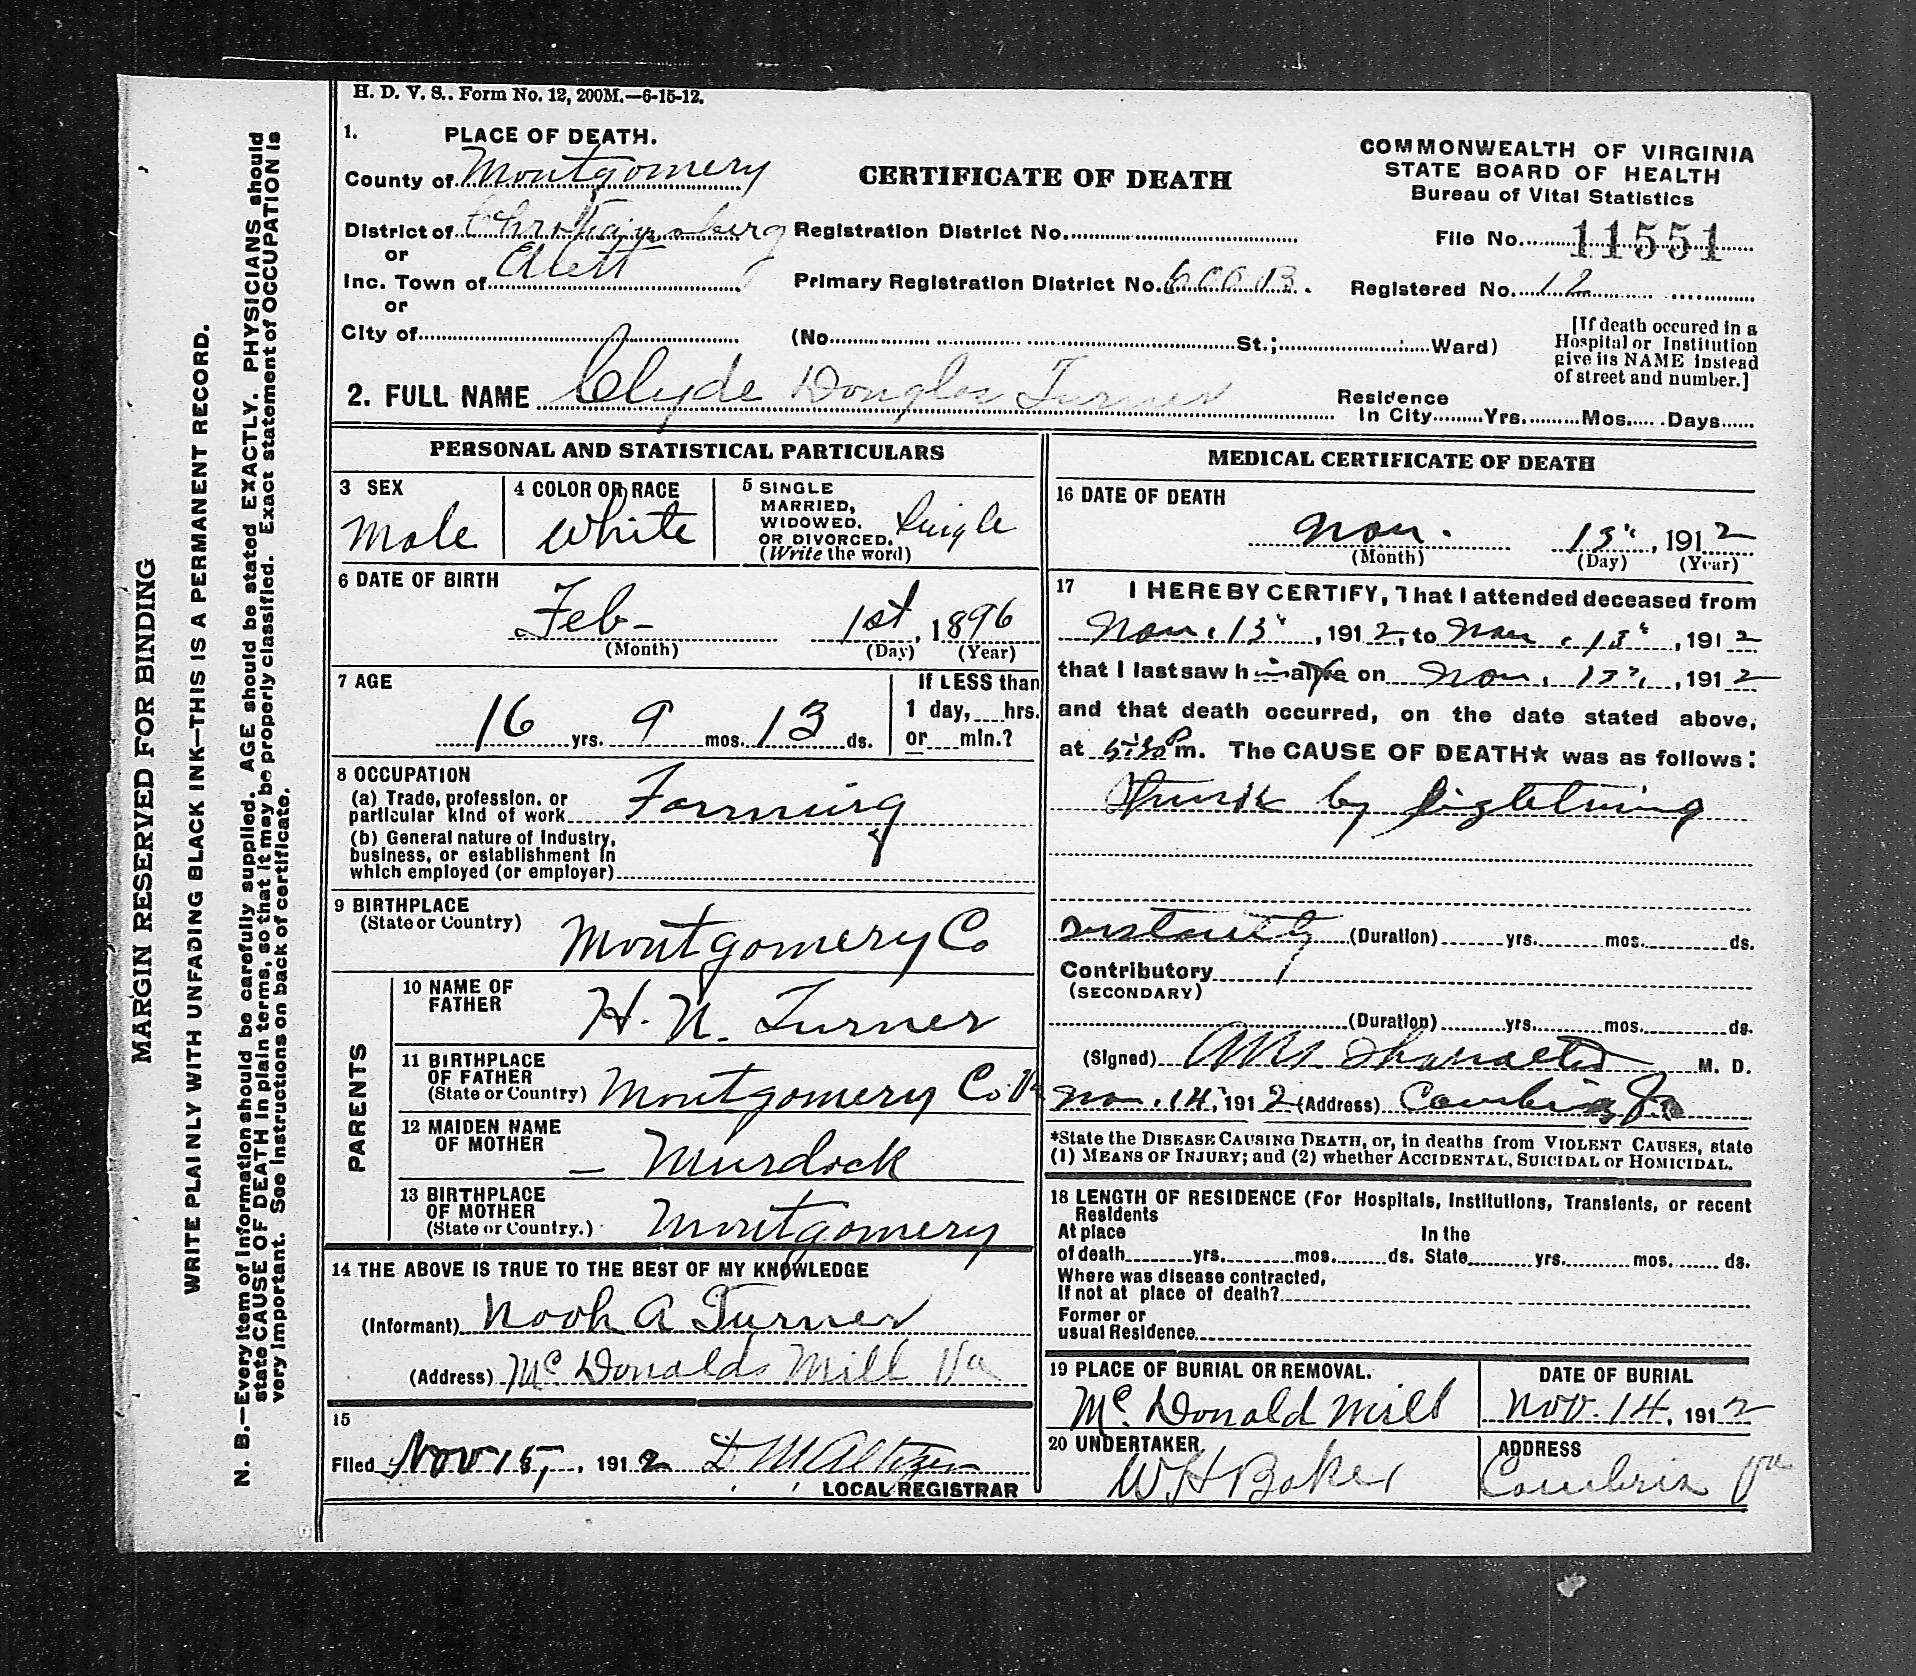 H. D. V. S.. Form No. 12, 200M.—6-15-12.
1. PLACE OF DEATH.
County of Montgomery
District of Christiansburg
or
Inc. Town of
or
City of
CERTIFICATE OF DEATH
Registration District No.
Primary Registration District No. 600B.
(No. St.; Ward)
COMMONWEALTH OF VIRGINIA
STATE BOARD OF HEALTH
Bureau of Vital Statistics
File No. 11551
Registered No. 12
[If death occured in a
Hospital or Institution
give its NAME instead
of street and number.]
2. FULL NAME Clyde Douglas Turner
Residence
In City Yrs. Mos. Days
PERSONAL AND STATISTICAL PARTICULARS
3 SEX
Male
4 COLOR OR RACE
White
5 SINGLE
MARRIED,
WIDOWED.
OR DIVORCED.
(Write the word)
Single
6 DATE OF BIRTH
Feb- 1st, 1896
(Month) (Day) (Year)
7 AGE
16 yrs. 9 mos. 13 ds.
If LESS than
1 day, hrs.
or min.?
8 OCCUPATION
(a) Trade, profession. or
particular kind of work Farming
(b) General nature of Industry,
business, or establishment in
which employed (or employer)
9 BIRTHPLACE
(State or Country)
Montgomery Co
PARENTS
10 NAME OF
FATHER
H. N. Turner
11 BIRTHPLACE
OF FATHER
(State or Country) Montgomery Co Va
12 MAIDEN NAME
OF MOTHER
— Murdock
13 BIRTHPLACE
OF MOTHER
(State or Country.) Montgomery
14 THE ABOVE IS TRUE TO THE BEST OF MY KNOWLEDGE
(Informant) Noah A Turner
(Address) McDonalds Mill Va
15
Filed Nov 15, 1912
LOCAL REGISTRAR
MEDICAL CERTIFICATE OF DEATH
16 DATE OF DEATH
Nov. 13, 1912
(Month) (Day) (Year)
17 I HEREBY CERTIFY, That I attended deceased from
Nov. 13, 1912, to Nov. 13, 1912
that I last saw him alive on Nov. 13, 1912
and that death occurred, on the date stated above,
at 5:30 P m. The CAUSE OF DEATH★ was as follows:
Struck by lightning
(Duration) yrs. mos. ds.
Contributory
(SECONDARY)
(Duration) yrs. mos. ds.
(Signed) M. D.
Nov. 14, 1912 (Address) Cambria Va
*State the DISEASE CAUSING DEATH, or, in deaths from VIOLENT CAUSES, state
(1) MEANS OF INJURY; and (2) whether ACCIDENTAL, SUICIDAL or HOMICIDAL.
18 LENGTH OF RESIDENCE (For Hospitals, Institutions, Transients, or recent
Residents
At place In the
of death yrs. mos. ds. State yrs. mos. ds.
Where was disease contracted,
If not at place of death?
Former or
usual Residence
19 PLACE OF BURIAL OR REMOVAL.
McDonald Mill
DATE OF BURIAL
Nov. 14, 1912
20 UNDERTAKER,
W H Baker
ADDRESS
Cambria Va
MARGIN RESERVED FOR BINDING
WRITE PLAINLY WITH UNFADING BLACK INK—THIS IS A PERMANENT RECORD.
N. B.—Every item of information should be carefully supplied. AGE should be stated EXACTLY. PHYSICIANS should
state CAUSE OF DEATH in plain terms, so that it may be properly classified. Exact statement of OCCUPATION is
very important. See instructions on back of certificate.